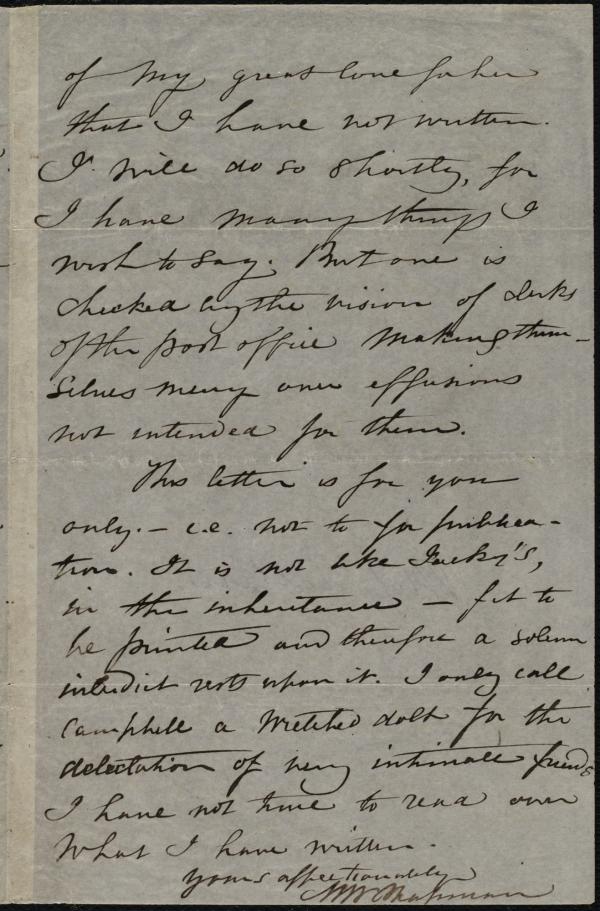 of my great love for her
that I have not written.
I will do so shortly, for
I have many things I
wish to say. But one is
checked by the vision of clerks
of the post office making them-
selves merry over effusions
not intended for them.
This letter is for you
only. — i.e. not to for publica-
tion. It is not like
in the inheritance — fit to
be printed and therefore a solemn
interdict rests upon it. I only call
Campbell a wretched dolt for the
delectation of very intimate friends
I have not time to read over
what I have written.
yours affectionately
M W Chapman